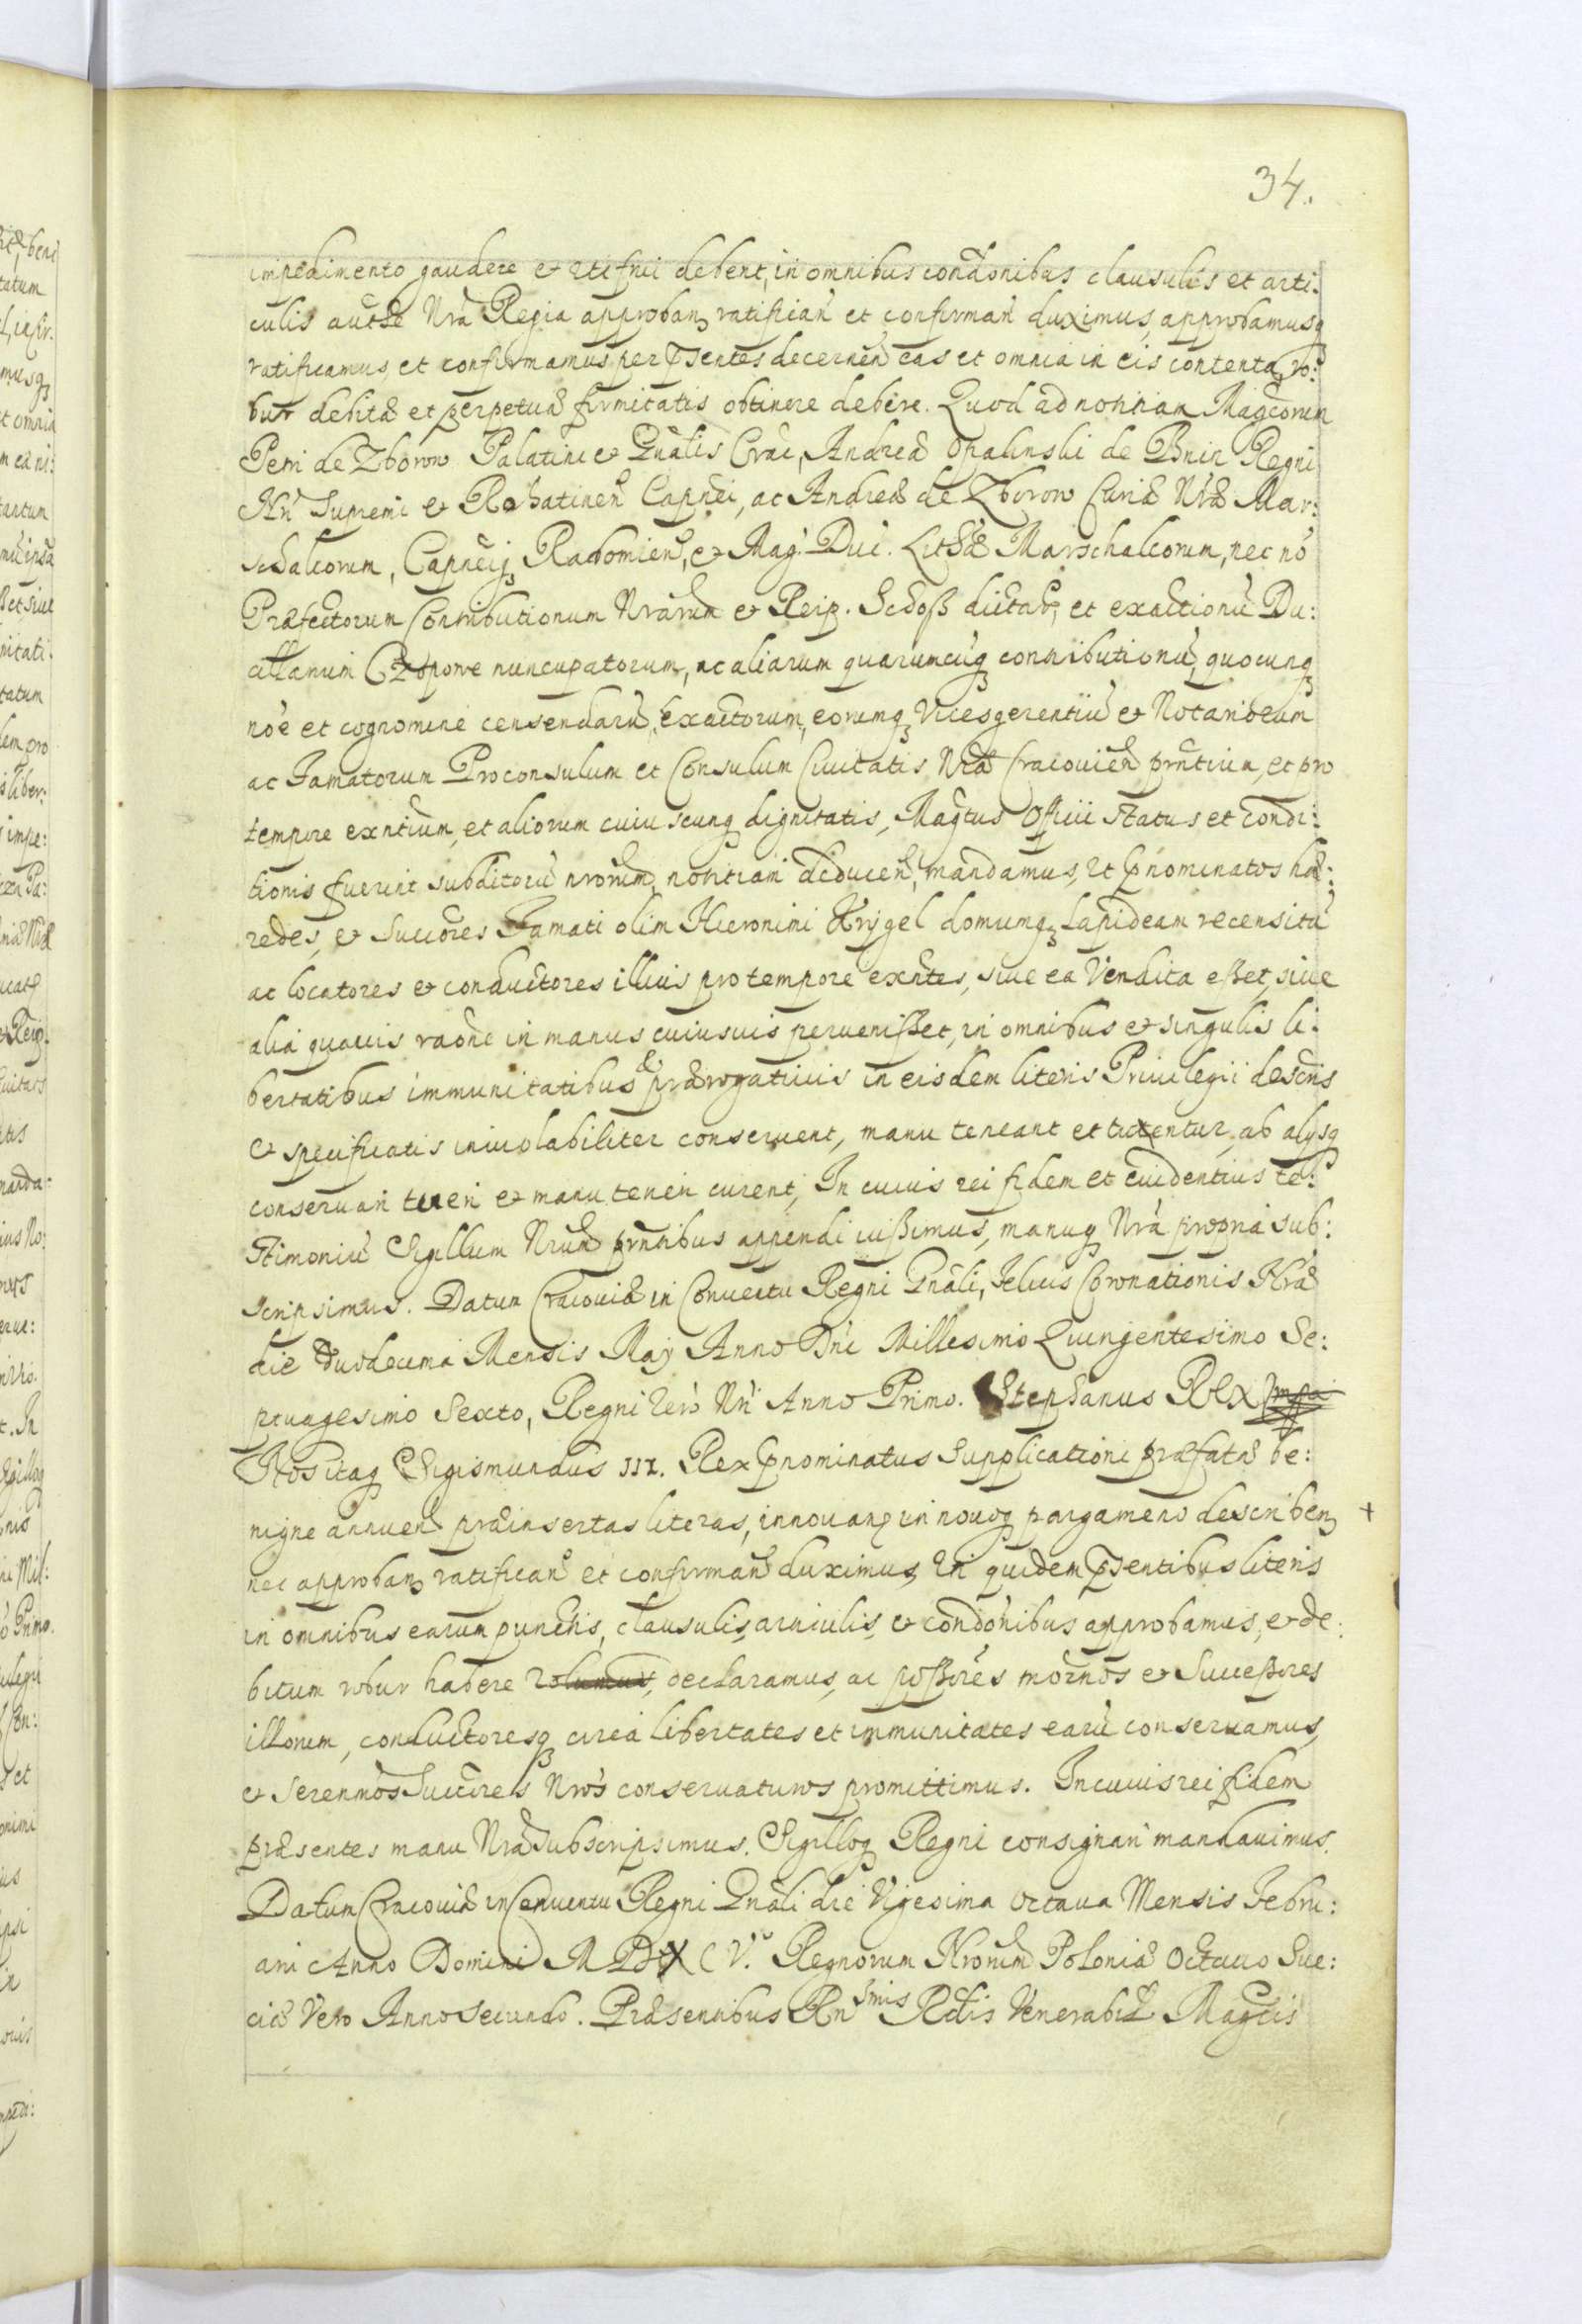 34.
impedimento gaudere et uti frui debent, in omnibus condonibus clausulis et arti:
culis aučthe Nrã Regia approban̄ ratifičan̄ et confirman̄ duximus, approbamusq̨
ratificamus, et confirmamus per p̄sentes decernen̄ eas et omnia in eis contenta ro:
bur debitæ et perpetuæ firmitatis obtinere debere. Quod ad notitiam Magcorum
Petri de Zborow Palatini et Gnãlis Crac, Andreæ Opalinski de Bnin Regni
Nr̃i Supremi et Rohatinen̄ Capnei, ac Andreæ de Zborow Curiæ Nræ Mar:
schalcorum, Capneiq̨ Radomien̄, et Mag. Duc. Lithæ Marschalcorum, nec nõ
Præfectorum Contributionum Nrãrum et Reip. Schoß dictar̄, et exactionũ Du:
cillarum Czopowe nuncupatorum, ac aliarum quarumcũq̨ contributionũ, quocunq̨
nõe et cognomine censendarũ, Exactorum, eorumq̨ vicesgerentiũ et Notariorum
ac Famatorum Proconsulum et Consulum Civitatis Nræ Cracovien̄ prñtium, et pro
tempore exñtium, et aliorum cuiuscunq̨ dignitatis, Magtus Officii status et condi:
tionis fuerint subditorũ nrõrum, notitiam deducen̄, mandamus, ut p̄nominatos hæ:
redes, et Succõres Famati olim Hieronimi Krÿgel domumq̨ Lapideam recensitã
ac locatores et conductores illius pro tempore exñtes, sive ea Vendita eßet, sive
alia quavis raõne in manus cuiusvis pervenißet, in omnibus et singulis li:
bertatibus immunitatibus & prærogativis in eisdem literis Privilegii descriis
et specificatis inviolabiliter conservent, manu teneant et tutentur, ab alijsq̨
conservari tueri et manu teneri curent, In cuius rei fidem et evidentius te:
stimoniũ Sigillum Nrum prñtibus appendi iußimus, manuq̨ Nrã propria sub:
scripsimus. Datum Cracoviæ in Conventu Regni Gnãli, Felicis Coronationis Nræ
die duodecima Mensis Maij Anno Dñi Millesimo Quingentesimo Se:
ptuagesimo Sexto, Regni vero Nr̃i Anno Primo. Stephanus Rex
Nos itaq̨ Sigismundus III. Rex p̄nominatus Supplicationi præfatæ be:
nigne annuen̄ præinsertas literas, innovanq̨ in novoq̨ pargameno describen̄ +
nec approban̄ ratifican̄ et confirman̄ duximus, uti quidem p̄sentibus literis
in omnibus earum punctis, clausulis, articulis, et condõnibus approbamus, et de:
bitum robur habere volumus, declaramus, ac poßores mõrnos et Succeßores
illorum, conductoresq̨ circa libertates et immunitates earũ conservamus,
et Serenmos Succores Nrõs conservaturos promittimus. In cuius rei fidem
præsentes manu Nrã subscripsimus. Sigilloq̨ Regni consignari mandavimus.
Datum Cracoviæ in Conventu Regni Gnãli die Vigesima octava Mensis Febru:
arii Anno Domini M D X C V. Regnorum Nrorum Poloniæ Octavo Sue:
ciæ Vero Anno Secundo. Præsentibus Rnsmis Rdis Venerabil Magcis